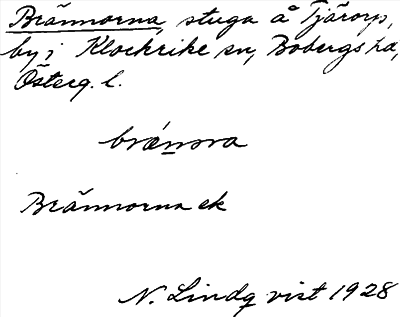 Brännorna, stuga å Tjärorp,
by i Klockrike sn, Bobergs hd,
Österg. l.
bränora
Brännorna ek
N. Lindqvist 1928